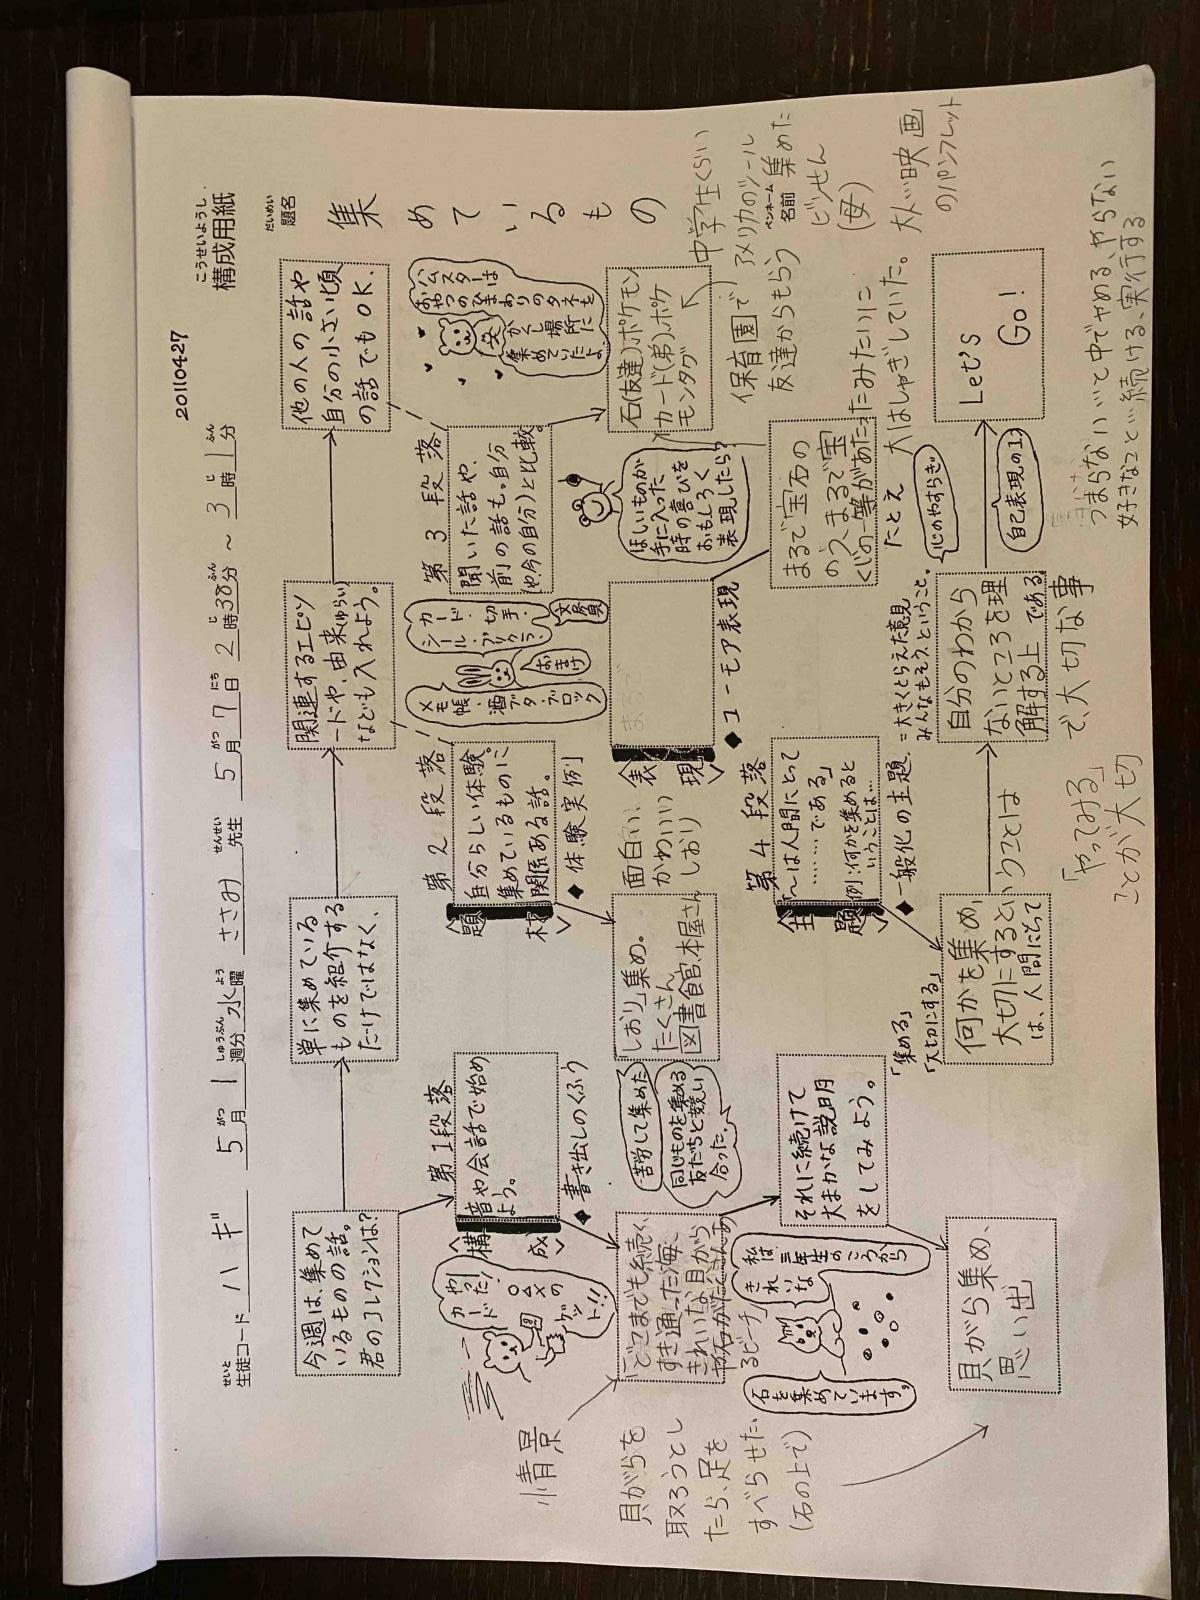 こうせいようし
構成用紙
20110427
せいと
生徒コード ハギ 5月1週分 水曜 ささみ先生 5月7日2時38分～3時1分
だいめい
題名
集めているもの
ペンネーム
名前
今週は、集めて
いるものの話。
君のコレクションは?
単に集めている
ものを紹介する
だけではなく、
関連するエピソ
ードや、由来(ゆらい)
なども入れよう。
他の人の話や
自分の小さい頃
の話でもOK.
第1段落
〈構成〉
音や会話で始め
よう。
◆書き出しのくふう
やった!
カード
○△×の
ゲット!!
第2段落
〈題材〉
自分らしい体験。
集めているものに
関係ある話。
◆体験実例
カード・切手・
シール・プリクラ・
文房具
おまけ
メモ帳・酒ブタ・ブロック
第3段落
聞いた話や、
前の話も。自分
(や今の自分)と比較。
ハムスターは
おやつのひまわりのタネを
かくし場所に
集めていたよ。
情景
どこまでも続く、
すき通った海、
きれいな貝がら
や石がたくさんあ
るビーチ」
貝がらを
取ろうとし
たら、足を
すべらせた。
(石の上で)
苦労して集めた
同じものを集める
友だちと競い
合った。
「しおり」集め。
たくさん
図書館、本屋さん
面白い、
かわいい
しおり
〈表現〉
まるで
◆ユーモア表現
ほしいものが
手に入った
時の喜びを
おもしろく
表現したら?
石(友達)、ポケモン
カード(弟)、ポケ
モンタグ
保育園で
友達からもらう
中学生くらい
アメリカのシール
集めた
ビンせん
(母)
犬が映画
のパンフレット
まるで宝石の
よう、まるで宝
くじの一等があたったみたいに
犬はしゃぎしていた。
たとえ
それに続けて
大まかな説明
をしてみよう。
私は三年生のころから
きれいな
石を集めています。
貝がら集め、
思い出
第4段落
〈主題〉
「～は人間にとって
………である」
例:何かを集めると
いうことは…
◆一般化の主題. =大きくとらえた意見
みんなもそう、ということ。
「集める」
「大切にする」
何かを集め、
大切にするということは
は、人間にとって
自分のわから
ないところを理
解する上
で、大切な事
である
心のやすらぎ
自己表現の1つ
Let's
Go!
「やってみる」
ことが大切
つまらない→と中でやめる、やらない
好きなこと→続ける、実行する